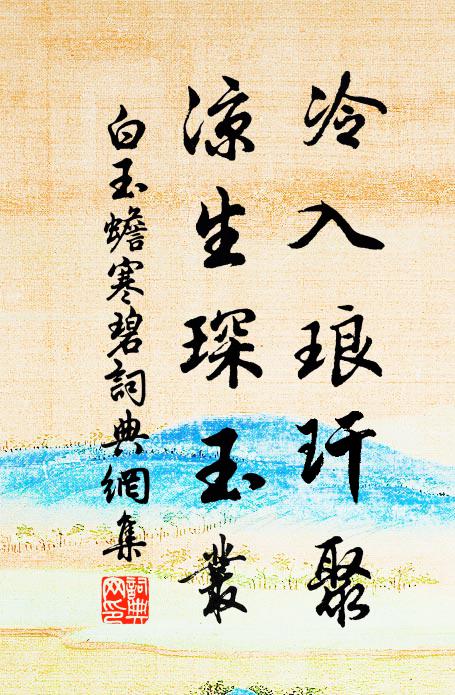 冷入琅玕聚
凉生琛玉叢
白玉蟾寒碧詞典網集